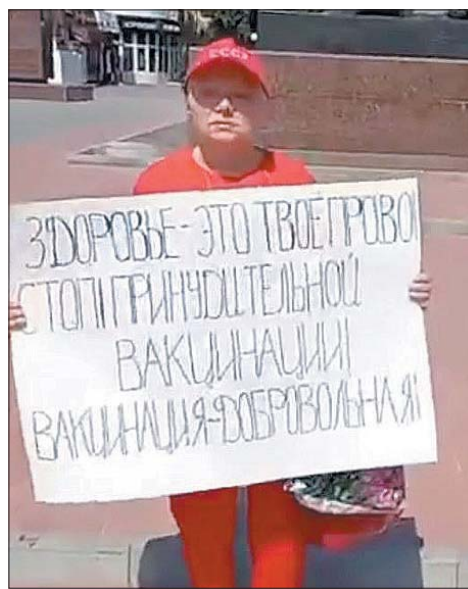 СССР
ЗДОРОВЬЕ - ЭТО ТВОЁ ПРОВО!
СТОП! ПРИНУДИТЕЛЬНОЙ
ВАКЦИНАЦИИ!
ВАКЦИНАЦИЯ-ДОБРОВОЛЬНАЯ!